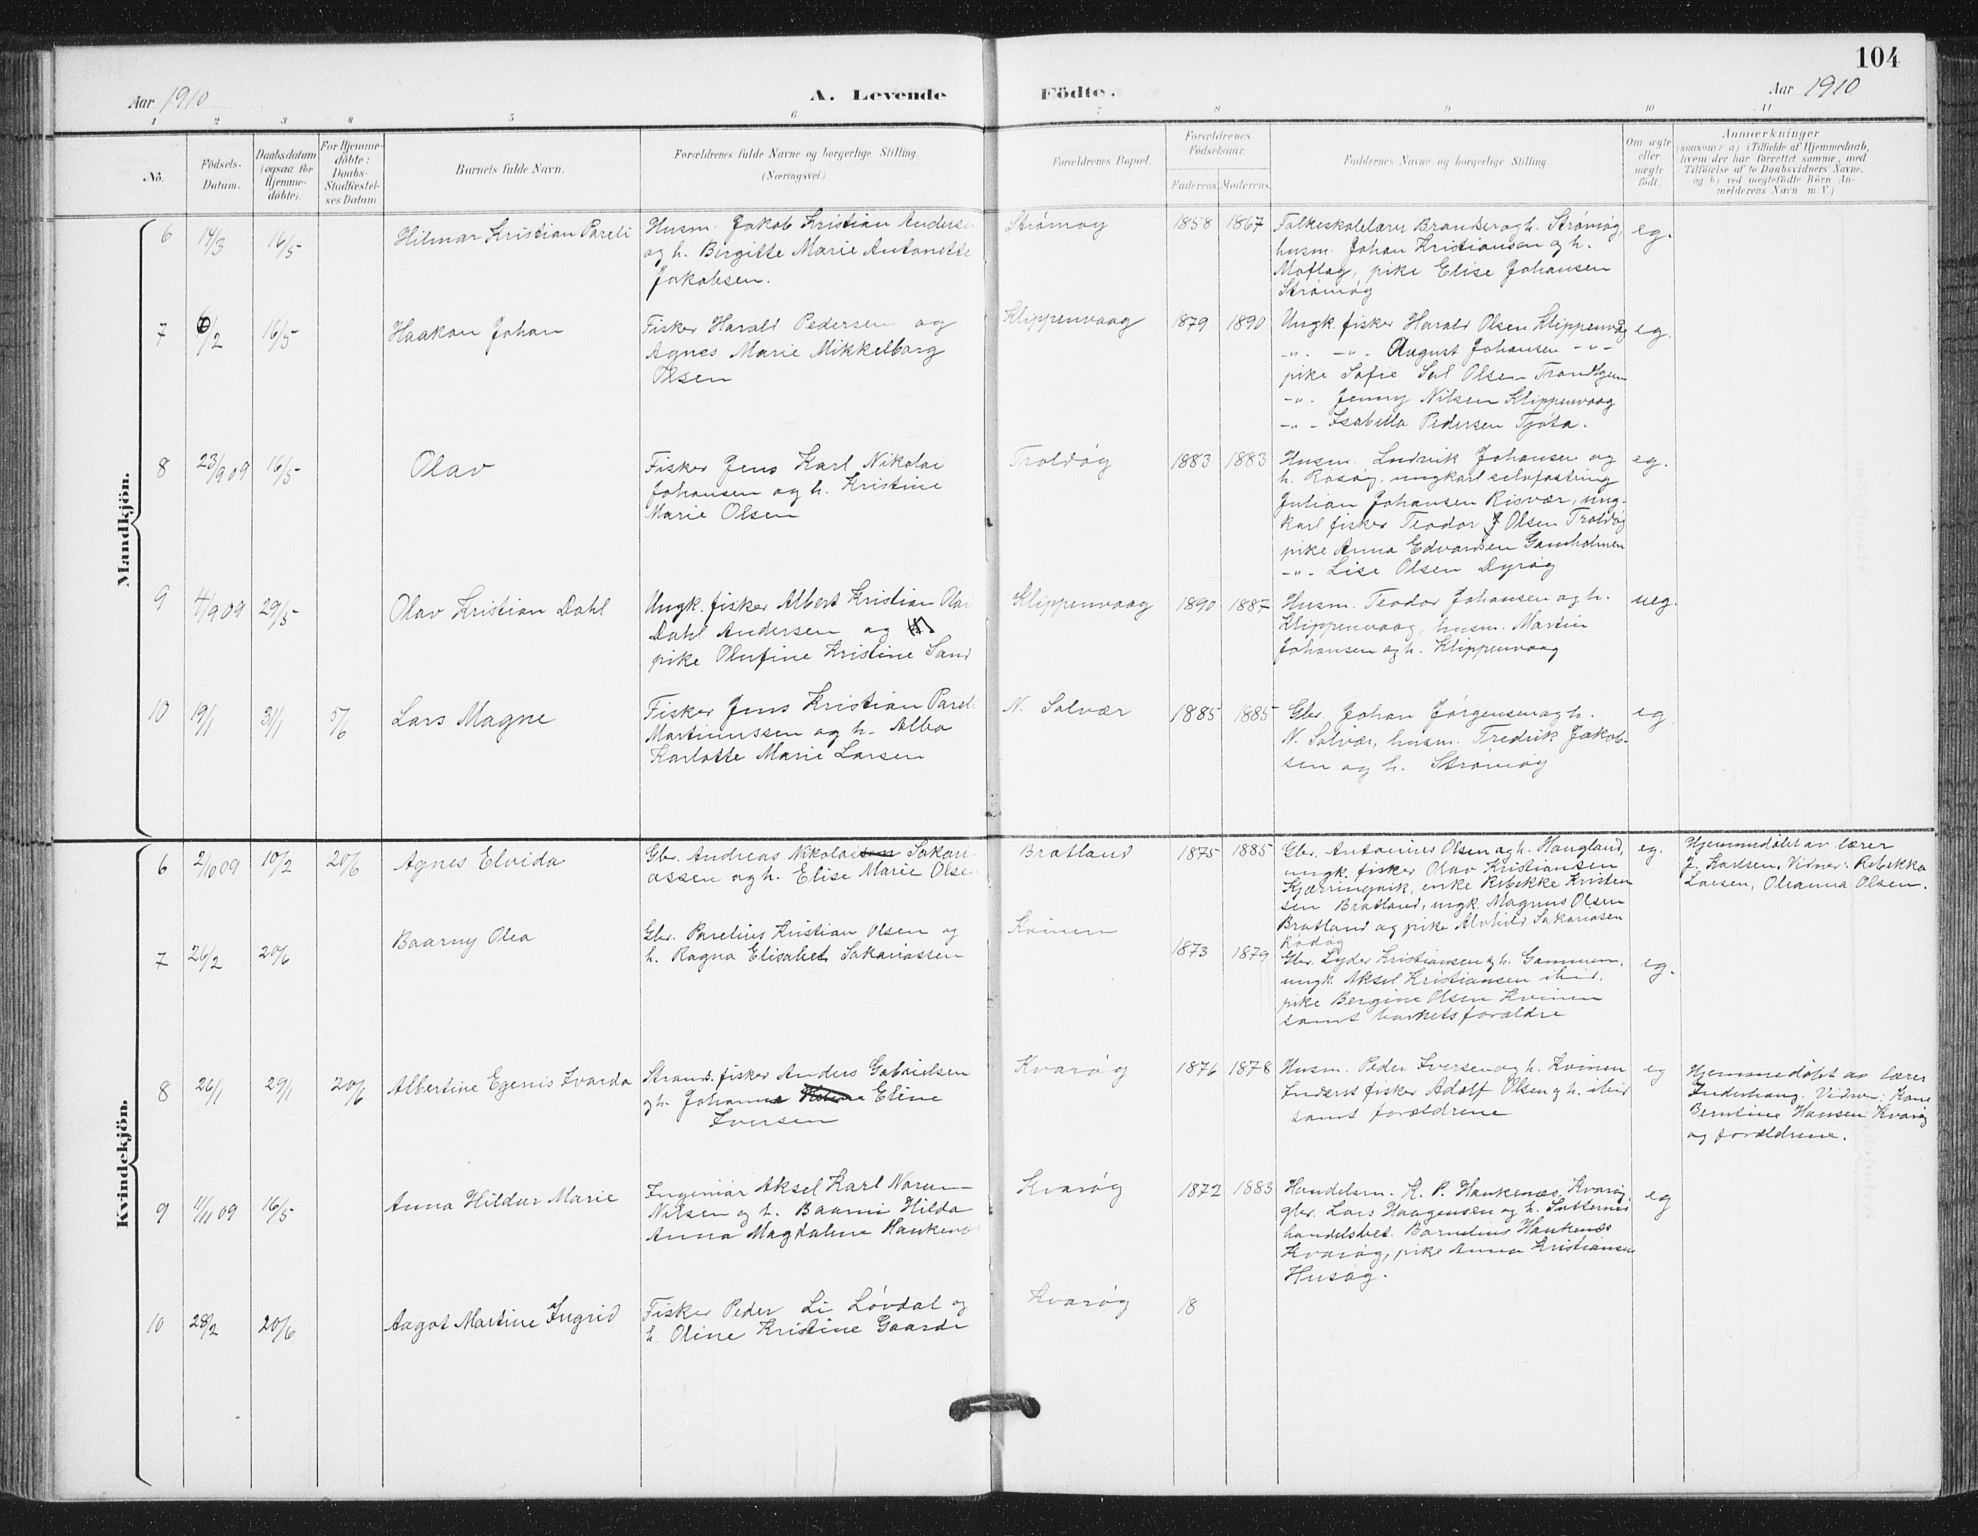 104
Aar 1910
A. Levende Födte.
Aar 1910
1 2 3 4 5 6 7 8 9 10 11
No.
Födsels-Datum.
Daabsdatum (ogsaa for Hjemme-døbte).
For Hjemme-døbte: Daabs-Stadfæstel-ses Datum
Barnets fulde Navn.
Forældrenes fulde Navne og borgerlige Stilling. (Næringsvei.)
Forældrenes Bopæl.
Forældrenes Födselsaar.
Faderens. Moderens.
Faddernes Navne og borgerlige Stilling.
Om ægte eller uægte født.
Anmærkninger
(saasom: a) i Tilfælde af Hjemmedaab,
hvem der har forrettet samme, med
Tilføielse af to Daabsvidners Navne,
og b) ved uægtefødte Börn An-
melderens Navn m. V.)
Mandkjön.
6 19/3 16/5 Hilmar Kristian Pareli
Husm. Jakob Kristian Anderse
og h. Birgitte Marie Antonette
Jakobsen.
Strømøy 1858 1867
Folkeskolelærer Brander og h. Strømøy,
husm. Johan Kristiansen og h.
Moflag, pike Elise Johansen
Strømøy
eg.
7 6/2 16/5 Haakon Johan
Fisker Harald Pedersen og
Agnes Marie Mikkelborg
Olsen
Klippenvaag 1879 1890
Ungk. fisker Harald Olsen Klippenvåg
-"- -"- August Johansen -"-
pike Sofie Olsen
-"- Jenny Nilsen Klippenvaag
-"- Isabella Pedersen Tjøta.
eg.
8 23/9 09 16/5 Olav
Fisker Jens Karl Nikolai
Johansen og h. Kristine
Marie Olsen
Troldøy 1883 1883
Husm. Ludvik Johansen og
h. Rosøy, ungkarl selvfostring
Julian Johansen Risvær, ung-
karl fisker Teodor J Olsen Troldøy
pike Anna Edvardsen Gamholmen
-"- Lise Olsen Dyrøy
eg.
9 4/9 09 29/5 Olav Kristian Dahl
Ungk. fisker Albert Kristian Olai
Dahl Andersen og
pike Olufine Kristine Sand
Klippenvaag 1890 1887
Husm. Teodor Johansen og h.
Klippenvaag, husm. Martin
Johansen og h. Klippenvaag
ueg.
10 19/1 31/1 5/6 Lars Magne
Fisker Jens Kristian Pareli
Martinussen og h. Alba
Karlotte Marie Larsen
N. Solvær 1885 1885
Gbr. Johan Jørgensen og h.
N. Solvær, husm. Fredrik Jakob-
sen og h. Strømøy
eg.
Kvindekjön.
6 2/10 09 10/2 20/6 Agnes Elvida
Gbr. Andreas Nikolaisen Sakari-
assen og h. Elise Marie Olsen
Bratland 1875 1885
Gbr. Antonius Olsen og h. Haugland,
ungk. fisker Olav Kristiansen
Kjærringvik, enke Rebekke Kristen
sen Bratland, ungk. Magnus Olsen
Bratland og pike Alvhild Sakariasen
Rødøy
eg.
Hjemmedøbt av lærer
J. Karlsen, Vidner: Rebekka
Larsen, Oleanna Olsen.
7 26/2 20/6 Baarny Olea
Gbr. Parelius Kristian Olsen og
h. Ragna Elisabet Sakariassen
Kvinen 1873 1879
Gbr. Lyder Kristiansen og h. Gammen,
ungk. Aksel Kristiansen ibid.
pike Bergine Olsen Kvinen
samt barnets forældre
eg.
8 26/1 29/1 20/6 Albertine Egenis Ivarda
Strands. fisker Anders Gabrielsen
og h. Johanna Eline
Iversen
Kvarøy 1876 1878
Husm. Peder Iversen og h. Kvinen
Inderst fisker Adolf Olsen og h. ibid
samt forældrene
eg
Hjemmedøbt av lærer
Inderhaug. Vidner: Kone
Berntine Hansen Kvarøy
og forældrene.
9 11/11 09 16/5 Anna Hildur Marie
Ingeniør Aksel Karl Narum
Nilsen og h. Baarni Hilda
Anna Magdalene Haukenæs
Kvarøy 1872 1883
Handelsm. K. P. Haukenæs, Kvarøy,
gbr. Lars Haagensen og h.
handelsbet. Bornelius Haukenæs
Kvarøy, pike Anna Kristiansen
Husøy.
eg
10 28/2 20/6 Aagot Martine Ingrid
Fisker Peder Li Løvdal og
h. Oline Kristine Gaarde
Kvarøy 18